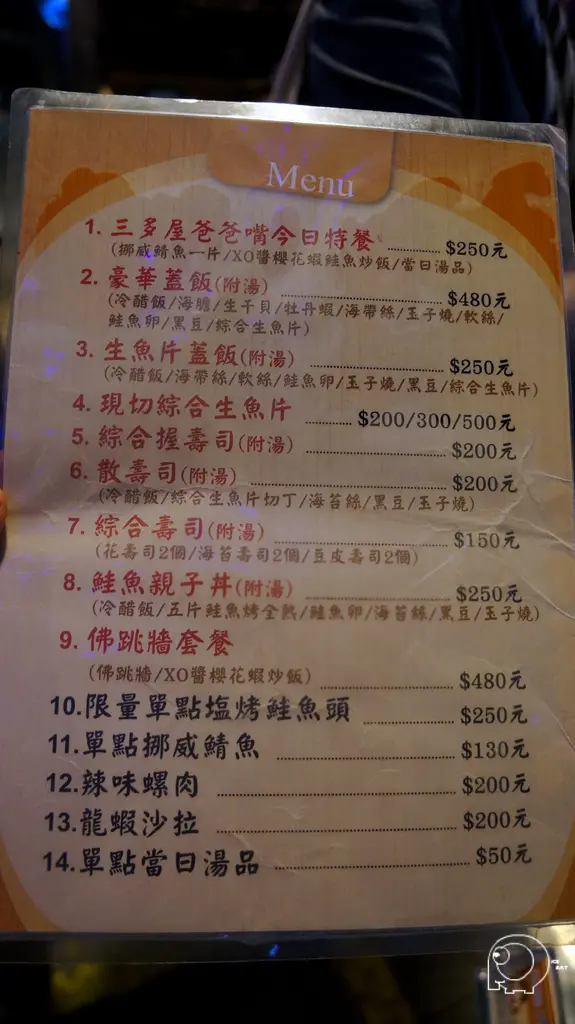 Menu
1. 三多屋爸爸嘴今日特餐 ............ $250元
(挪威鯖魚一片/XO醬櫻花蝦鮭魚炒飯/當日湯品)
2. 豪華蓋飯(附湯) ............ $480元
(冷醋飯/海膽/生干貝/牡丹蝦/海帶絲/玉子燒/軟絲/
鮭魚卵/黑豆/綜合生魚片)
3. 生魚片蓋飯(附湯) ............ $250元
(冷醋飯/海帶絲/軟絲/鮭魚卵/玉子燒/黑豆/綜合生魚片)
4. 現切綜合生魚片 ............ $200/300/500元
5. 綜合握壽司(附湯) ............ $200元
6. 散壽司(附湯) ............ $200元
(冷醋飯/綜合生魚片切丁/海苔絲/黑豆/玉子燒)
7. 綜合壽司(附湯) ............ $150元
(花壽司2個/海苔壽司2個/豆皮壽司2個)
8. 鮭魚親子丼(附湯) ............ $250元
(冷醋飯/五片鮭魚烤全熟/鮭魚卵/海苔絲/黑豆/玉子燒)
9. 佛跳牆套餐
(佛跳牆/XO醬櫻花蝦炒飯) ............ $480元
10.限量單點塩烤鮭魚頭 ............ $250元
11.單點挪威鯖魚 ............ $130元
12.辣味螺肉 ............ $200元
13.龍蝦沙拉 ............ $200元
14.單點當日湯品 ............ $50元